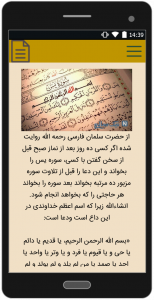 14:39
از حضرت سلمان فارسی رحمه الله روایت
شده اگر کسی ده روز بعد از نماز صبح قبل
از سخن گفتن با کسی، سوره یس را
بخواند و این دعا را قبل از تلاوت سوره
مزبور ده مرتبه بخواند بعد سوره را بخواند
هر حاجتی را که بخواهد انجام شود.
انشاءالله زیرا که اسم اعظم خداوندی در
این داع است ودعا است:
«بسم الله الرحمن الرحیم، یا قدیم یا دائم
یا حی و یا قیوم یا فرد و یا وتر یا واحد یا
احد یا صمد یا من لم یلد و لم یولد و لم